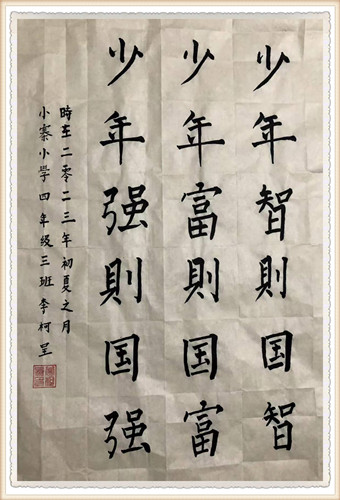 少年智則国智
少年富則国富
少年强則国强
時在二零二三年初夏之月
小寨小學四年级三班李柯呈